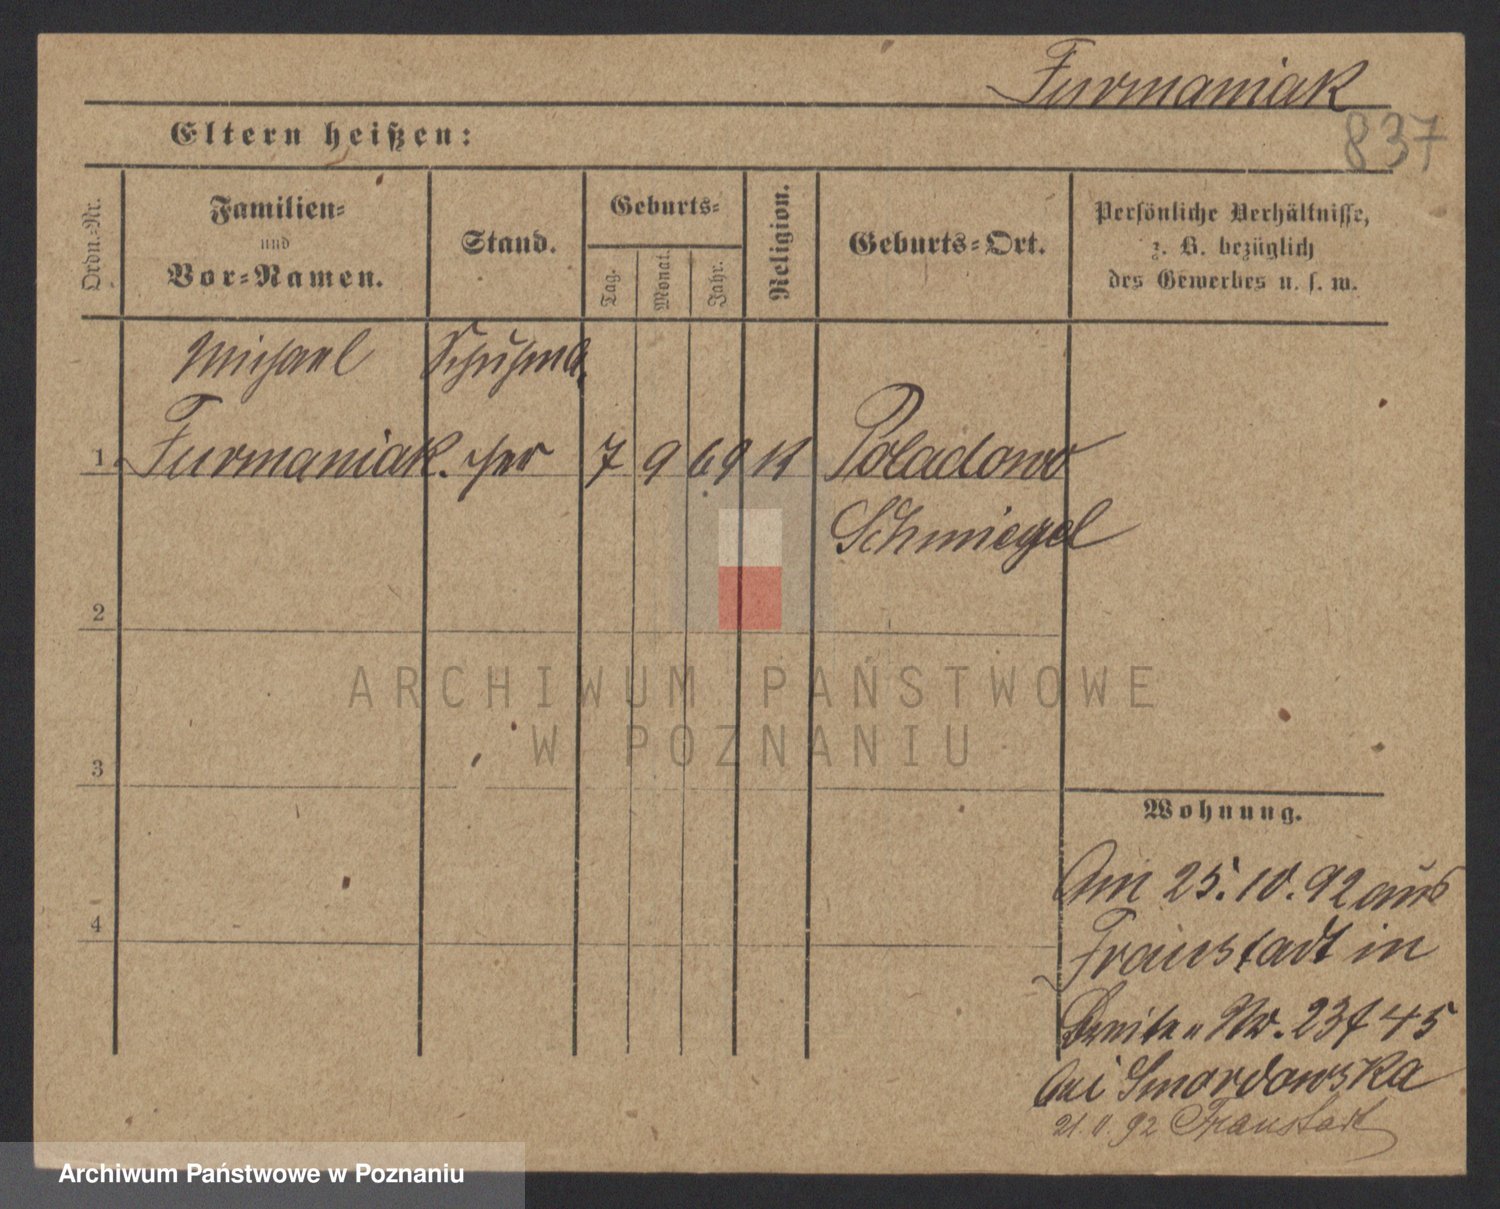 Furmaniak
837
Eltern heißen:
Ordn.-Nr.
Familien-
und
Vor-Namen.
Stand.
Geburts-
Tag.
Monat.
Jahr.
Religion.
Geburts-Ort.
Persönliche Verhältnisse,
z. B. bezüglich
des Gewerbes u. s. w.
Michael Schuhma
1 Furmaniak. cher 7 9 69 K Poladowo
Schmiegel
2
3
4
Wohnung.
Am 25.10.92 aus
Fraustadt in
Breite Nr. 23 45
bei Smordowska
21.11.92 Fraustadt
ARCHIWUM PAŃSTWOWE
W POZNANIU
Archiwum Państwowe w Poznaniu